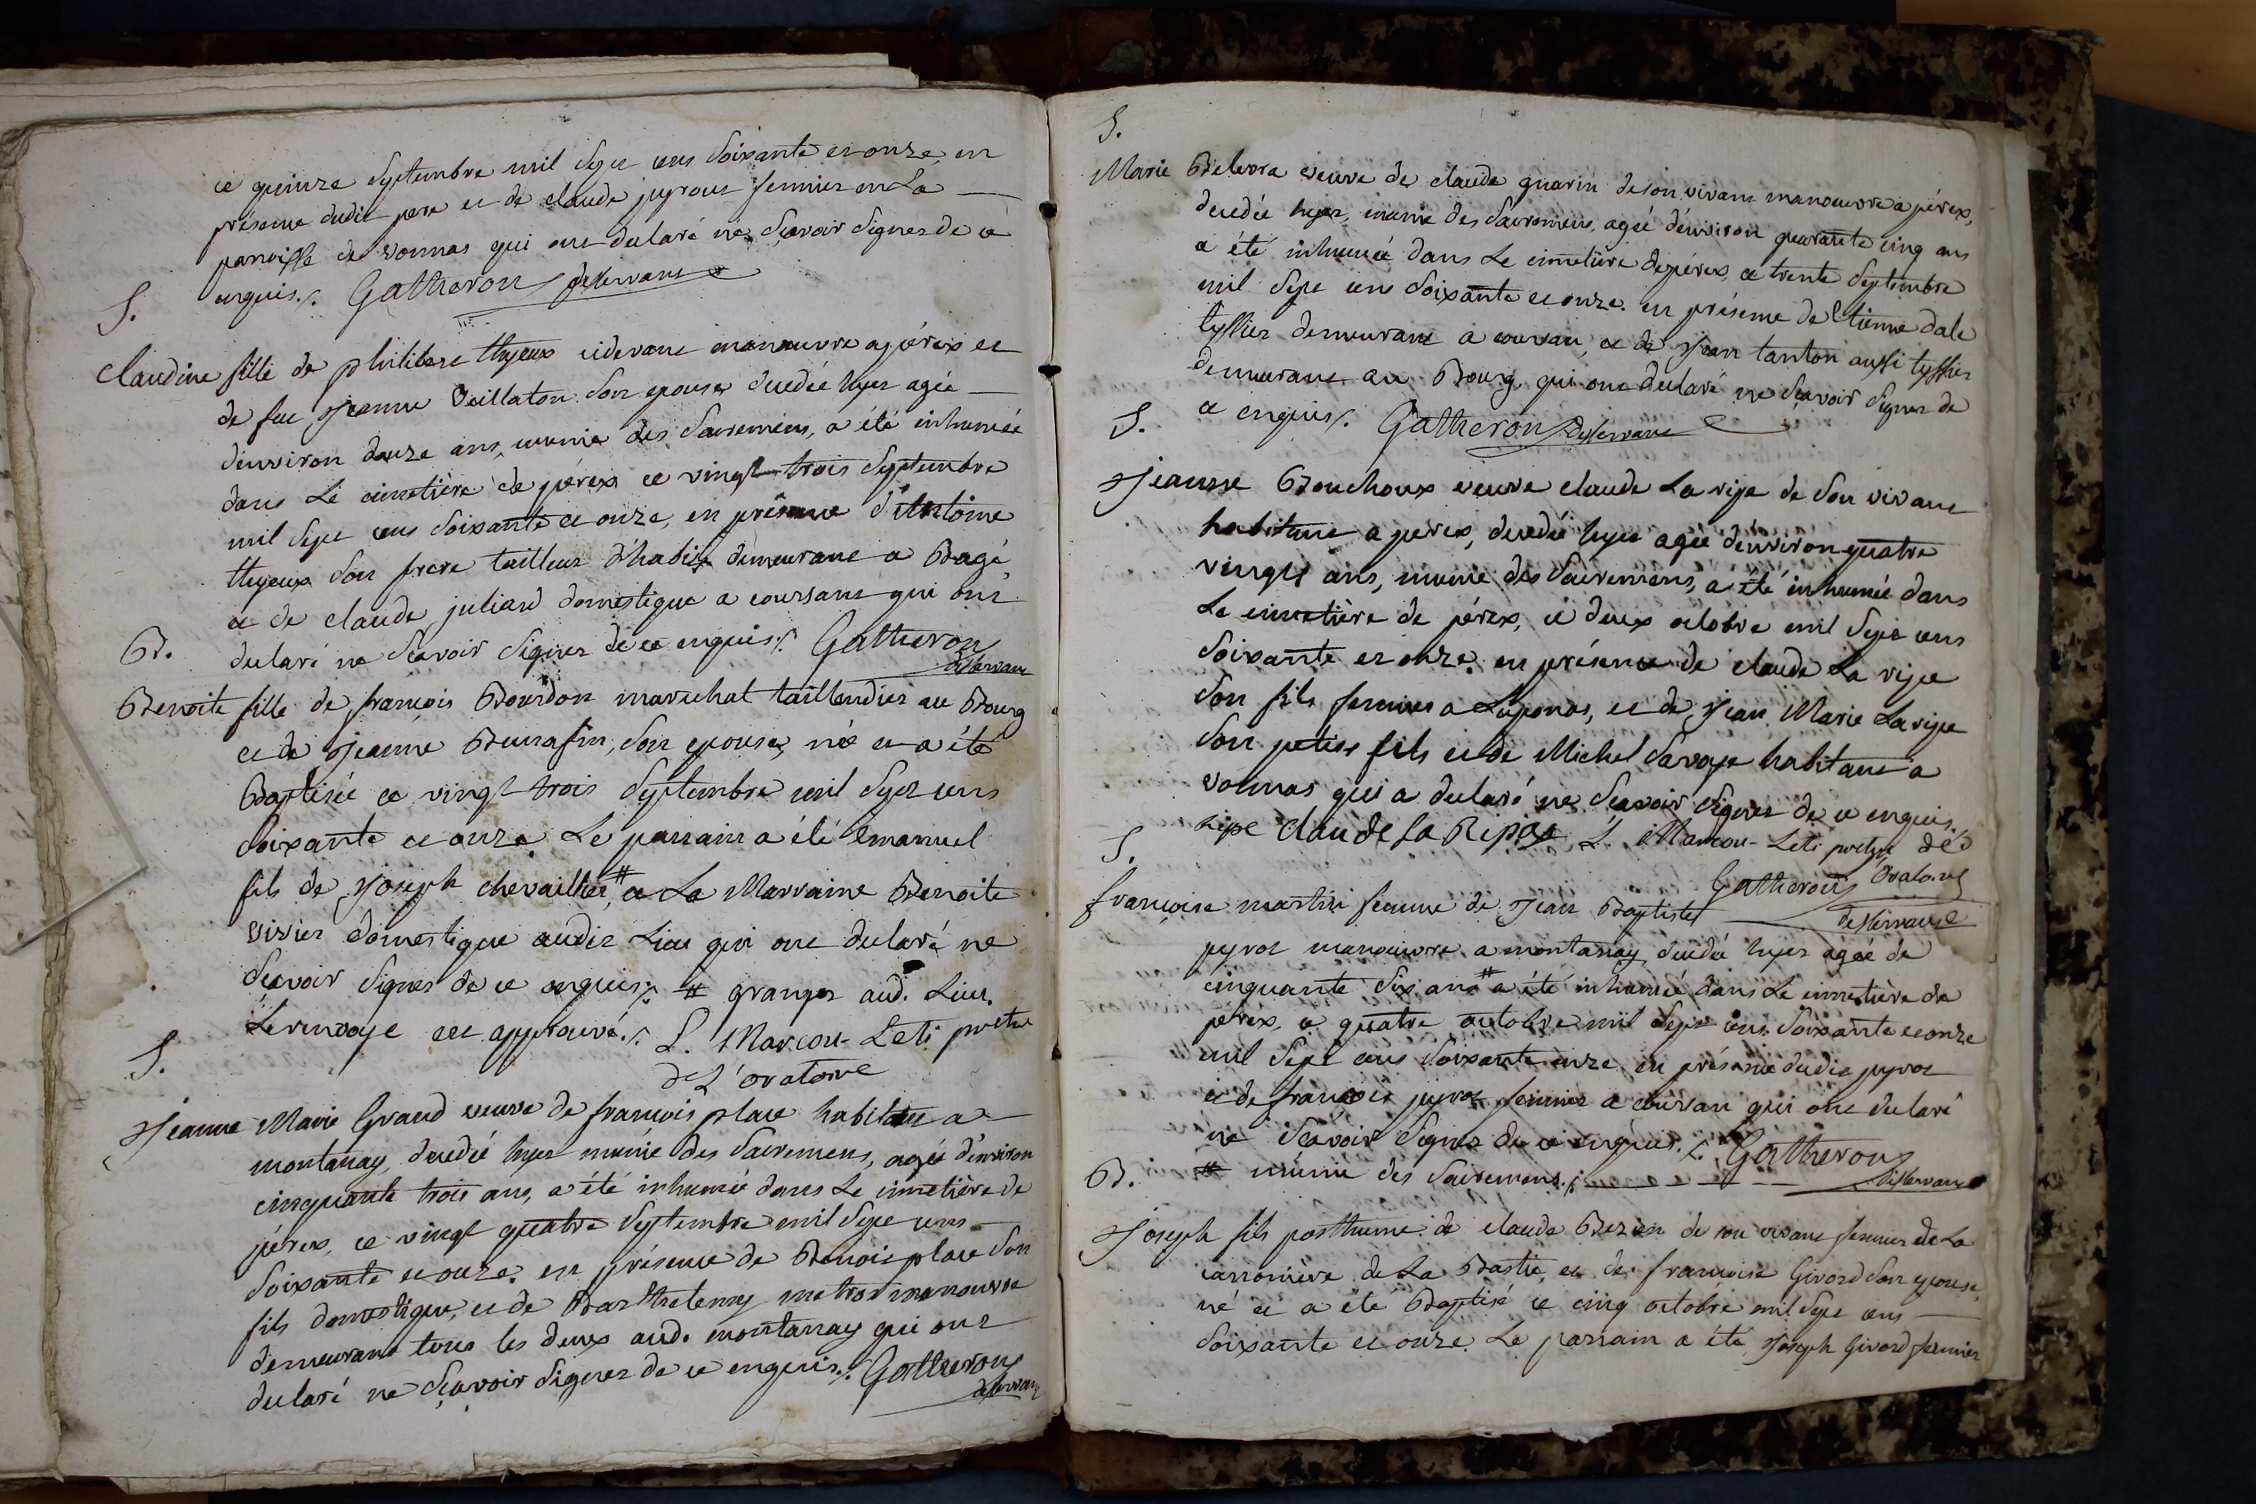 ce quinze septembre mil sept cens soixante et onze, en
présence dudit pere et de claude juyroux fermier en La
parroisse de vonnas qui ont declaré ne sçavoir signer de ce
enquis./. Gatheron desservant
S.
Claudine fille de philibert thyeux cidevant manœuvre a pérex et
de feu Jeanne Veillaton son epouse, decedée hyer agée
d'environ douze ans, munie des sacremens, a été inhumée
dans le cimetière de pérex ce vingt trois septembre
mil sept cens soixante et onze, en présence d'Antoine
thyeux son frere tailleur d'habits demeurant a Bagé
et de claude juliard domestique a coursant qui ont
declaré ne sçavoir signer de ce enquis./. Gatheron
desservant
B.
Benoite fille de françois Bourdon marechal taillandier au Bourg
et de Jeanne son epouse, née et a été
Baptisée ce vingt trois septembre mil sept cens
soixante et onze. Le parrain a été Emanuel
fils de Joseph chevaillier # et La Marraine Benoite
vivier domestique audit Lieu qui ont declaré ne
sçavoir signer de ce enquis./. # granger aud. Lieu.
Le renvoye est approuvé./. L. Marcou-Leti pretre
de L'oratoire
S.
Jeanne Marie Grand veuve de françois place habitant a
montanay, decedée hyer munie des sacremens, agée d'environ
cinquante trois ans, a été inhumée dans Le cimetière de
pérex, ce vingt quatre septembre mil sept cens
soixante et onze. en présence de Benoit place son
fils domestique, et de Barthelemy metrat manouvre
demeurant tous les deux aud. montanay qui ont
declaré ne sçavoir signer de ce enquis./. Gatheron
desservant
S.
Marie veuve de claude guarin de son vivant manœuvre a pérex,
decedée hyer, munie des sacremens, agée d'environ quarante cinq ans
a été inhumée dans Le cimetière de pérex, ce trente septembre
mil sept cens soixante et onze. en présence de Etienne dale
tyssier demeurant a couran, et de Jean tanton aussi tyssier
demeurant au Bourg qui ont declaré ne sçavoir signer de
ce enquis./. Gatheron desservant
S.
Jeanne Bouchoux veuve claude La ripe de son vivant
habitant a perex, decedée hyer agée d'environ quatre
vingts ans, munie des sacremens, a été inhumée dans
Le cimetière de pérex, ce deux octobre mil sept cens
soixante et onze. en présence de claude La ripe
son fils fermier a Luponas, et de Jean Marie La ripe
son petits fils et de Michel savoye habitant a
vonnas qui a declaré ne sçavoir signer de ce enquis./.
ripe claude la Ripe L. Marcou-Leti pretre de
L'oratoire
Gatheron
desservant
S.
françoise martin femme de Jean Baptiste
pyrot manœuvre a montanay decedée hyer agée de
cinquante six ans # a été inhumée dans Le cimetière de
pérex, ce quatre octobre mil sept cens soixante et onze
mil sept cens soixante onze en présence dudit pyrot
et de françois juyrot fermier a couran qui ont declaré
ne sçavoir signer de ce enquis./. Gatheron
# munie des sacremens./. desservant
B.
Joseph fils posthume de claude Bezien de son vivant fermier de La
carronière de La Bastie, et de françoise Givord son epouse,
né et a été Baptisé ce cinq octobre mil sept cens
soixante et onze. Le parrain a été Joseph Givord fermier